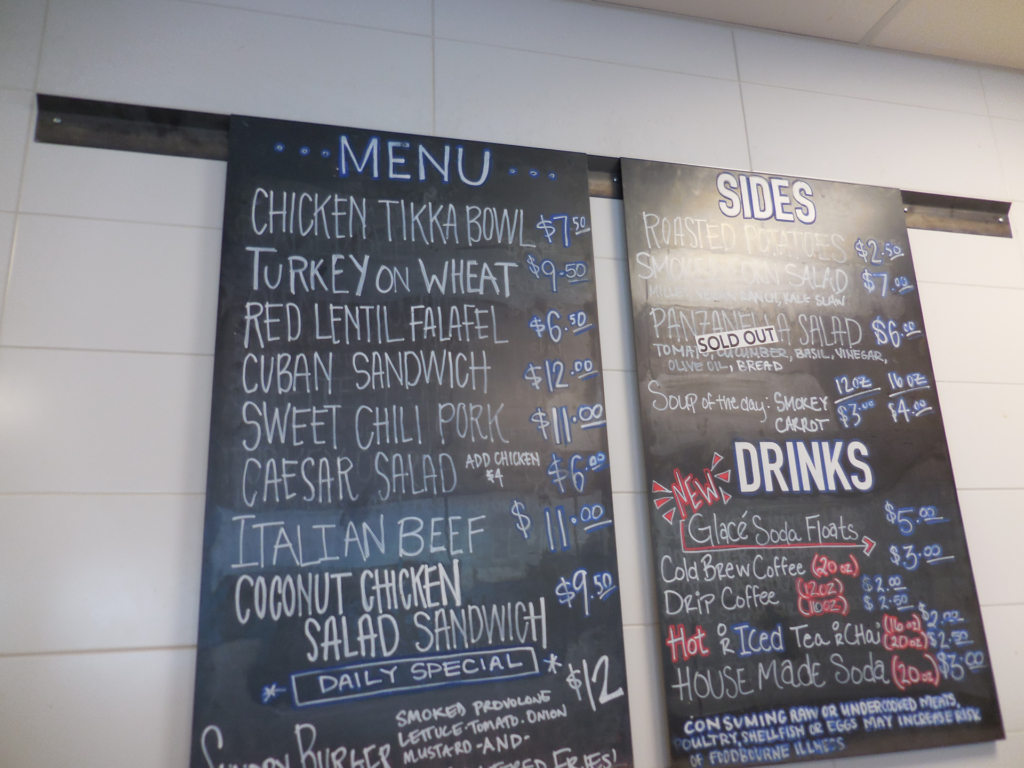 MENU
CHICKEN TIKKA BOWL $7.50
TURKEY ON WHEAT $9.50
RED LENTIL FALAFEL $6.50
CUBAN SANDWICH $12.00
SWEET CHILI PORK $11.00
CAESAR SALAD ADD CHICKEN $4 $6.00
ITALIAN BEEF $11.00
COCONUT CHICKEN $9.50
SALAD SANDWICH
DAILY SPECIAL
$12
SMOKED PROVOLONE
LETTUCE·TOMATO·ONION
BURGER MUSTARD -AND-
FRIES!
SIDES
ROASTED POTATOES $2.50
CORN SALAD $7.00
RANCH, KALE SLAW
PANZANELLA SALAD $6.00
SOLD OUT
TOMATO, CUCUMBER, BASIL, VINEGAR,
OLIVE OIL, BREAD
12OZ 16OZ
SOUP of the day: SMOKEY $3.00 $4.00
CARROT
DRINKS
NEW
Glacé Soda Floats $5.00
Cold Brew Coffee (20oz) $3.00
Drip Coffee (12OZ) $2.00
$2.50
Hot OR Iced Tea OR Chai (16oz) $2.00
(20oz) $2.50
HOUSE MADE SODA (20oz) $3.00
CONSUMING RAW OR UNDERCOOKED MEATS,
POULTRY, SHELLFISH OR EGGS MAY INCREASE RISK
OF FOODBOURNE ILLNESS